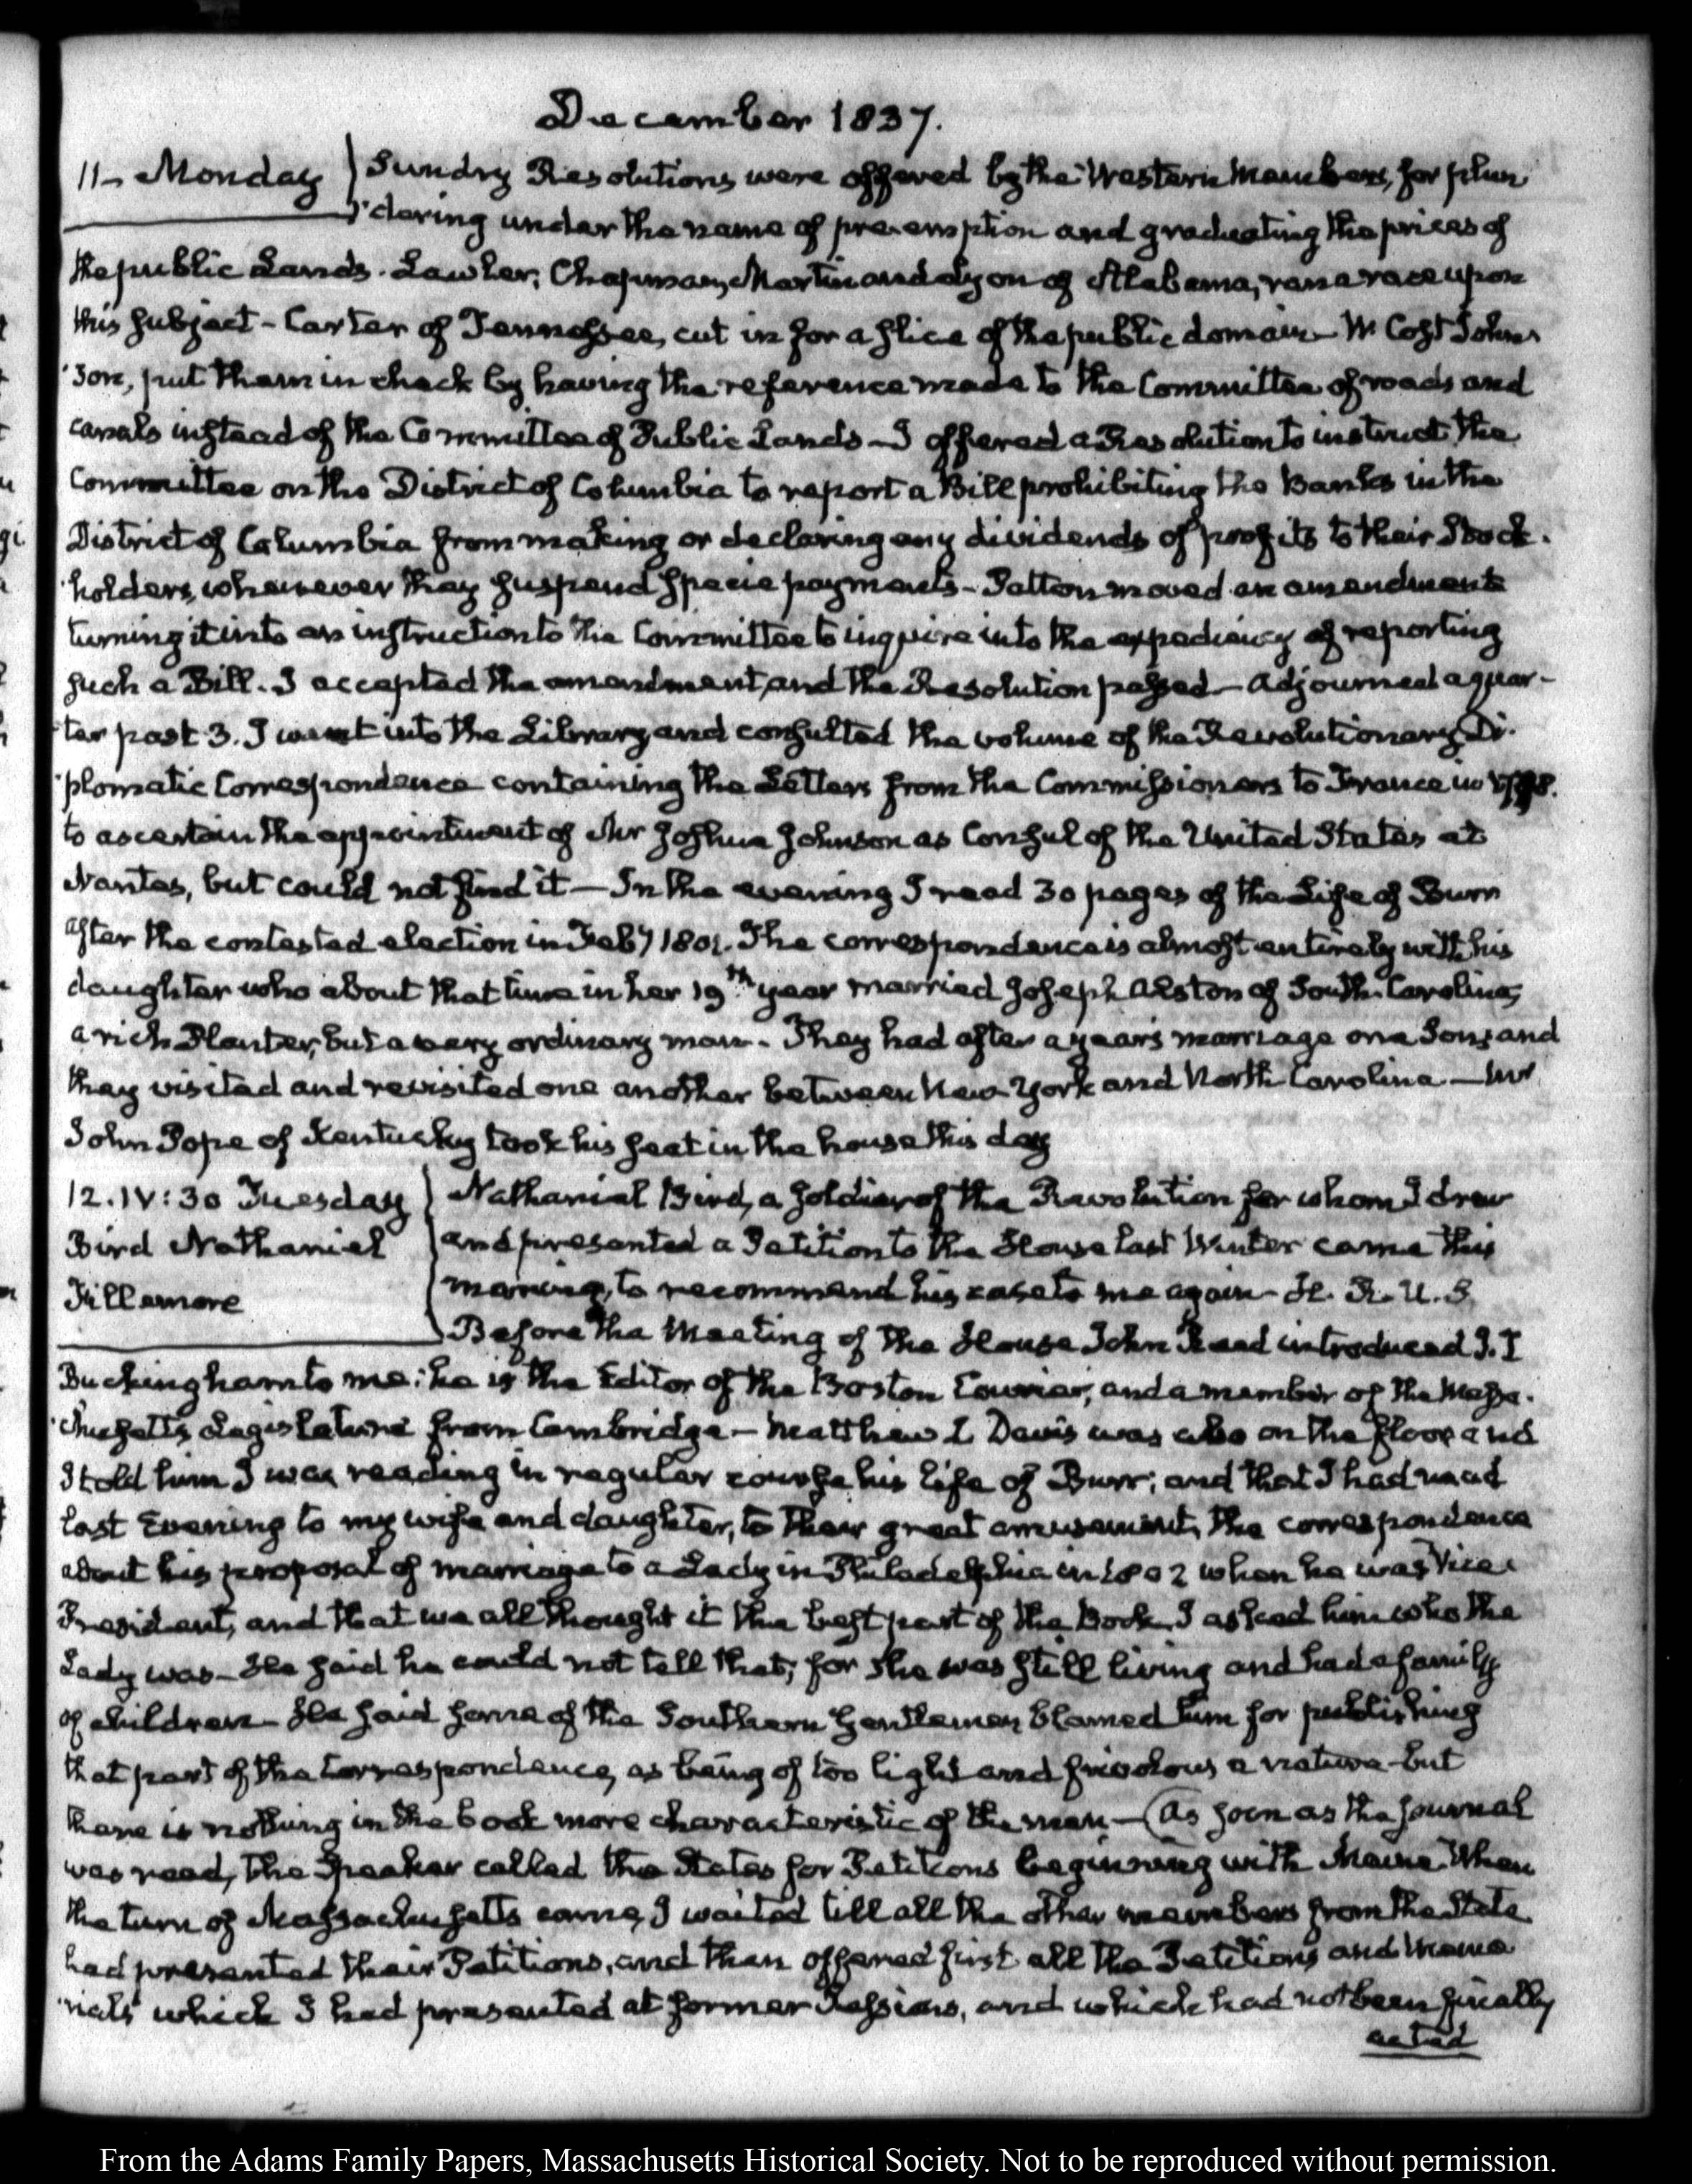 December 1837.
11- Monday } Sundry Resolutions were offered by the Western Members, for plun
'dering under the name of pre-emption and graduating the prices of
the public Lands. Lawler, Chapman, Martin and Lyon of Alabama, ran a race upon
this subject - Carter of Tennessee, cut in for a slice of the public domain - W Cost John
'son, put them in check by having the reference made to the Committee of roads and
canals instead of the Committee of Public Lands - I offered a Resolution to instruct the
Committee on the District of Columbia to report a Bill prohibiting the Banks in the
District of Columbia from making or declaring any dividends of profits to their Stock.
'holders, whenever they suspend specie payments - Patton moved an amendment
turning it into an instruction to the Committee to inquire into the expediency of reporting
such a Bill. I accepted the amendment, and the Resolution passed - Adjourned a quar-
'ter past 3. I went into the Library and consulted the volume of the Revolutionary Di.
'plomatic Correspondence containing the Letters from the Commissioners to France in
to ascertain the appointment of Mr Joshua Johnson as Consul of the United States at
Nantes, but could not find it — In the evening I read 30 pages of the Life of Burr
after the contested election in Feby 1801. The correspondence is almost entirely with his
daughter who about that time in her 19th year married Joseph Alston of South Carolina,
a rich Planter, but a very ordinary man - They had after a year's marriage one Son, and
they visited and revisited one another between New York and North Carolina — Mr
John Pope of Kentucky took his seat in the house this day
12. IV:30 Tuesday } Nathanial Bird, a soldier of the Revolution for whom I drew
Bird Nathaniel } and presented a Petition to the House last Winter came this
Fillmore } morning, to recommend his case to me again - H. R. U. S.
Before the Meeting of the House John Reed introduced J. T
Buckingham to me: he is the Editor of the Boston Courier, and a member of the Massa.
'chusetts Legislature from Cambridge - Matthew L Davis was also on the floor and
I told him I was reading in regular course his life of Burr; and that I had read
last Evening to my wife and daughter, to their great amusement, the correspondence
about his proposal of marriage to a Lady in Philadelphia in 1802 when he was Vice
President, and that we all thought it the best part of the Book. I asked him who the
Lady was - He said he could not tell that, for she was still living and had a family
of children - He said some of the Southern Gentlemen blamed him for publishing
that part of the Correspondence, as being of too light and frivolous a nature - but
there is nothing in the book more characteristic of the man — (As soon as the Journal
was read, the Speaker called the States for Petitions beginning with Maine. When
the turn of Massachusetts came, I waited till all the other members from the State
had presented their Petitions, and then offered first all the Petitions and Memo
'rials which I had presented at former Sessions, and which had not been finally
acted
From the Adams Family Papers, Massachusetts Historical Society. Not to be reproduced without permission.